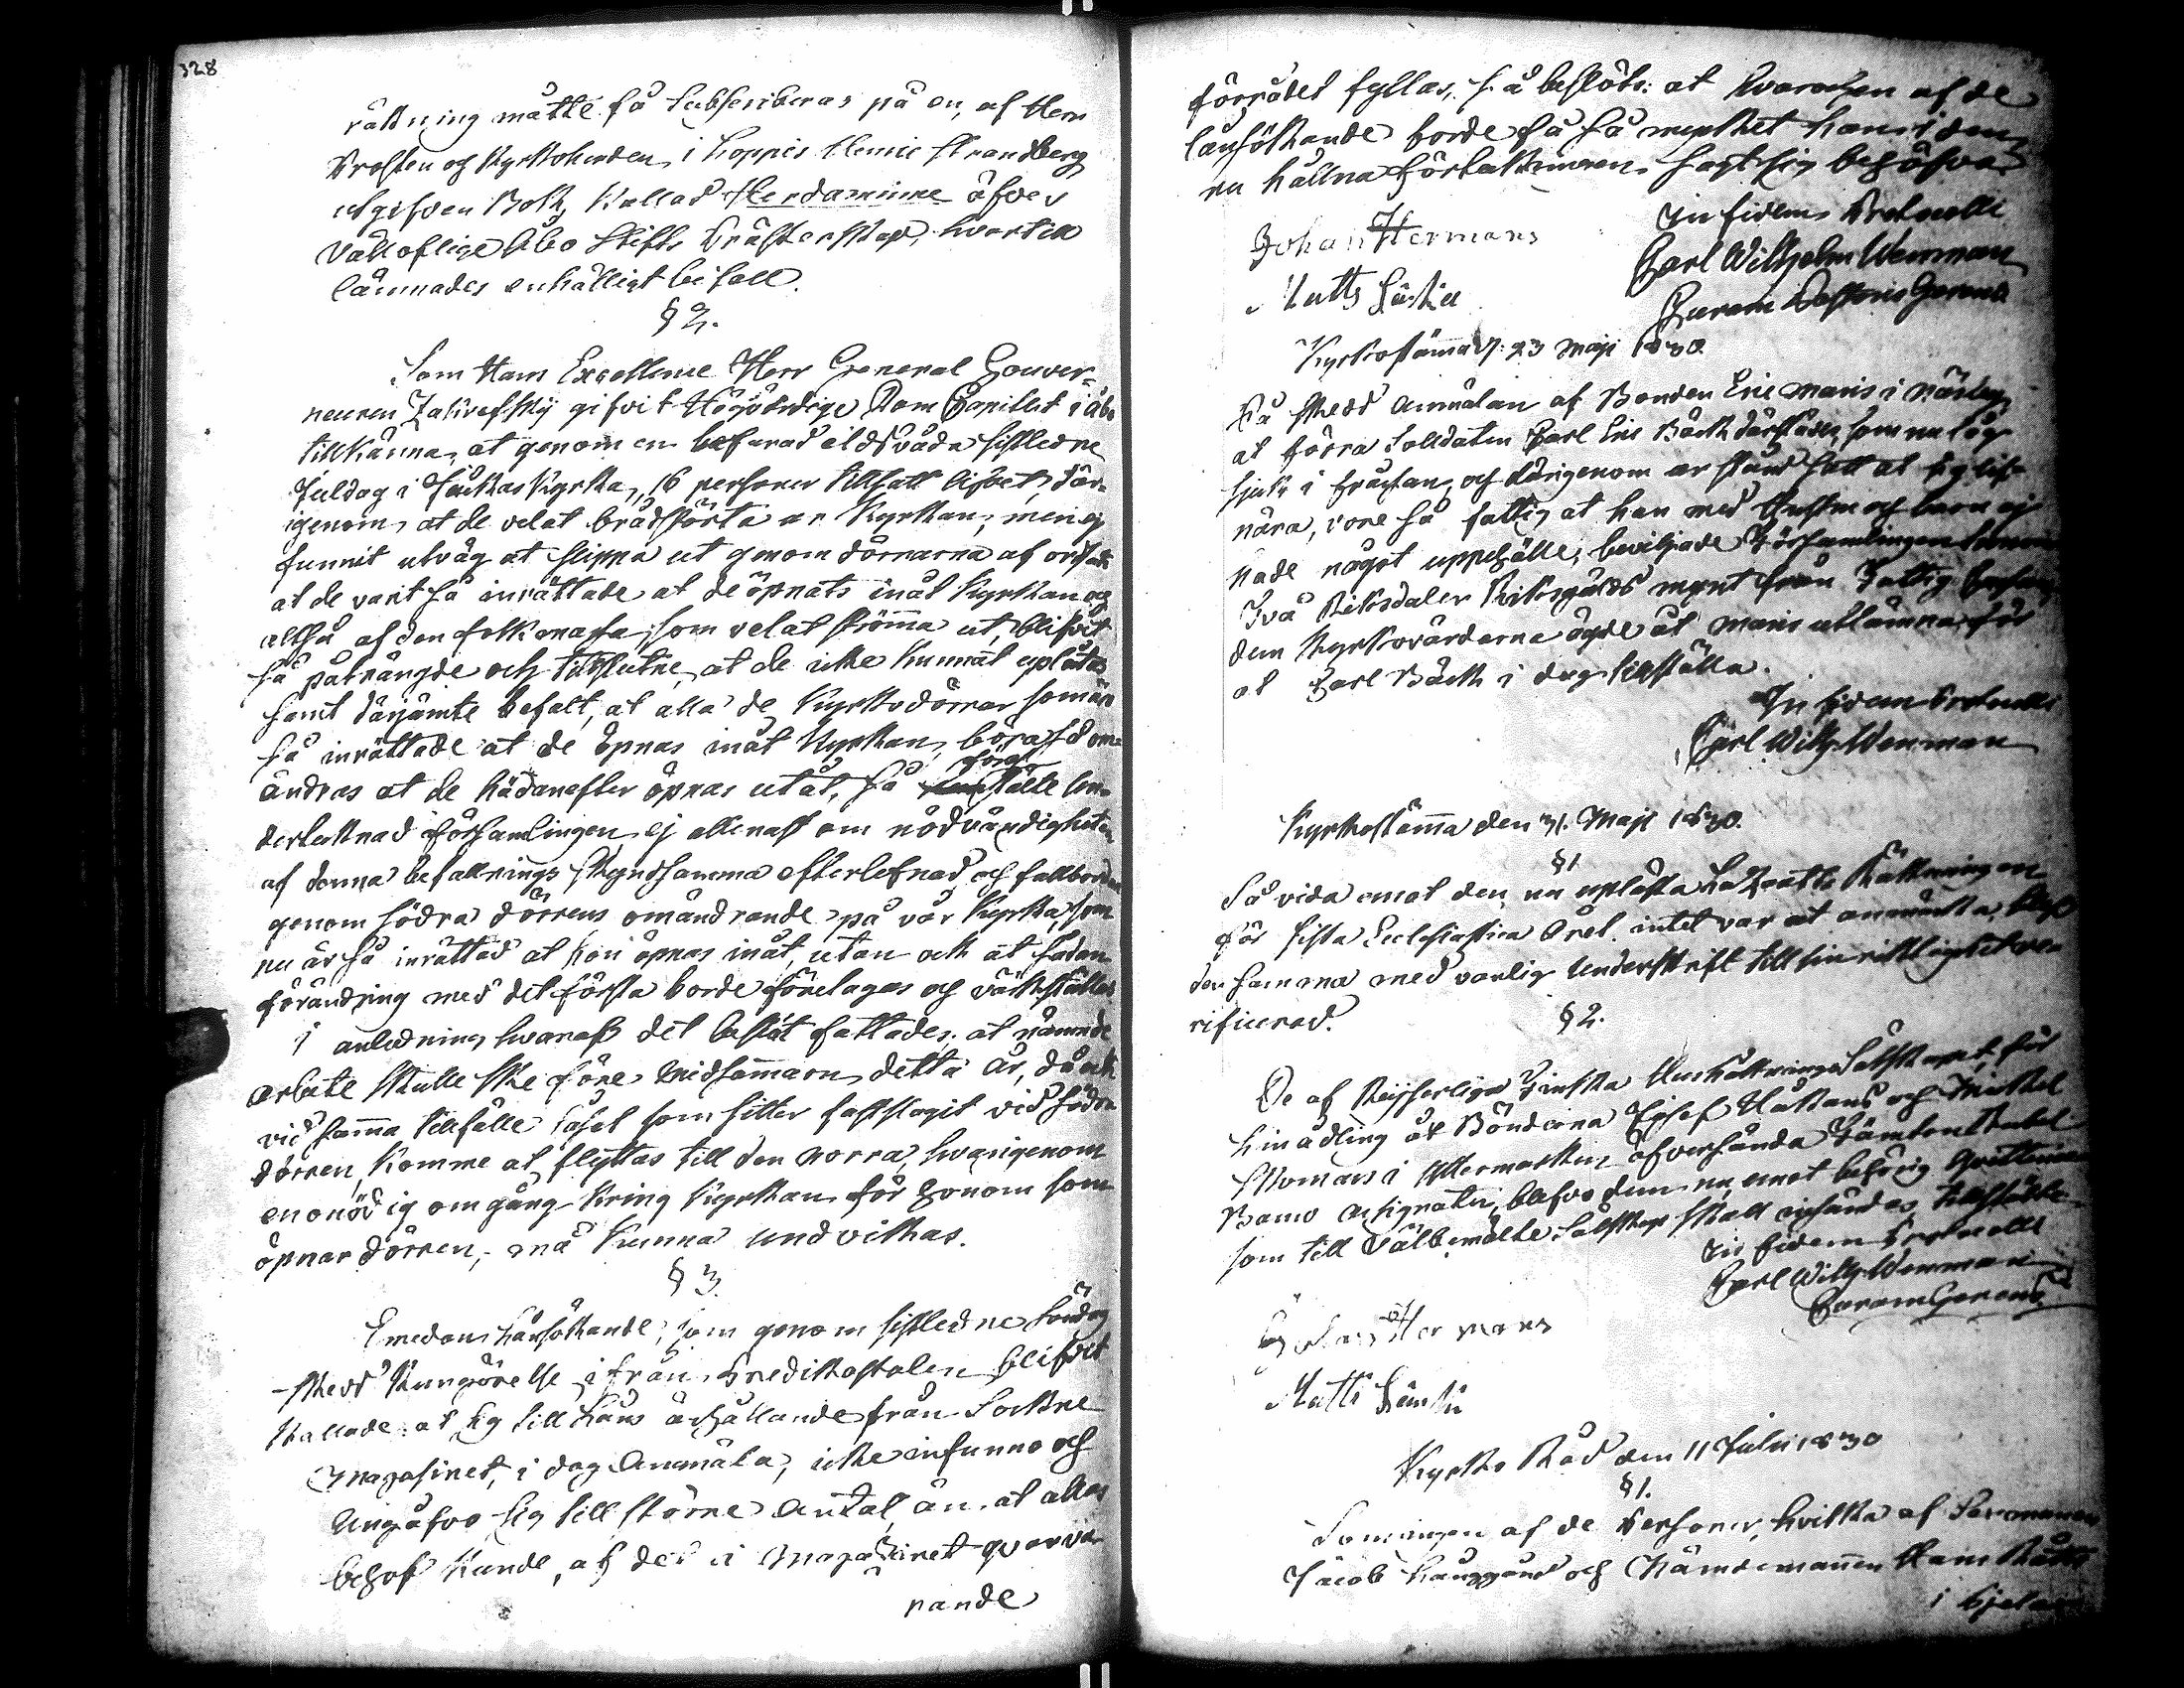 328
rättning måtte få Subscriberas på en, af Herr
Prosten och Kyrkoherden i Loppis Clemie Strandberg
utgifven Bok, kallad Herdaminne öfver
Vällofliga Åbo Stifts Prästerskap, hvartill
lämnades enhälligt bifall.
§ 2.
Som Hans Excellence Herr General Gouver-
neuren Zakrefskij gifvit Högvördige Dom Capitlet i Åbo
tillkänna, at genom en befarad eldsvåda sistledne
Juldag i Kyrka, 16 personer tillsatt lifvet, där-
igenom, at de velat brådstörta ur Kyrkan, men ej
funnit utväg at slippa ut genom dörrarna af orsak
at de varit så inrättade at de öpnats inåt Kyrkan och
altså af den folkmassa, som velat strömma ut, blifvit
så påtrangde och tillslutne, at de icke kunnat uplåtas
samt därjämte befalt, at alla de Kyrkodörrar som äro
så inrättade at de öpnas inåt Kyrkan, böra så om-
ändras at de hädanefter öpnas utåt, så förestälte un-
dertecknad församlingen ej allenast om nödvändigheten
af denna befallnings skyndsamma efterlefnad och fullbordan
genom södra dörrens omändrande på vår Kyrka, som
nu är så inrättad at hon öpnas inåt, utan ock at sådan
förändring med det första borde företagas och värkställas
i anledning hvaraf det beslut fattades, at nämnde
arbete skulle ske före Midsommaren detta år, då ock
vid samma tillfälle låset som sitter fastslagit vid södra
dörren, komme at flyttas till den norra, hvarigenom
en onödig omgång kring Kyrkan för honom som
öpnar dörren, må kunna undvikas.
§ 3.
Emedan Lånsökande, som genom sistledne Söndag
skedd Kungörelse ifrån Predikostolen blifvit
kallade at sig till Låns erhållande från Sockne
Magasinet, i dag Anmäla, icke infunno och
Angåfvo sig till större Antal, än at allas
behof kunde, af det i Magazinet qvarva-
rande
förrådet fyllas, så beslöts: at hvarochen af de
lånsökande borde få så mycket han i den
nu hållna förteckningen sagt sig behöfva.
In fidem Protocolli
Johan Hermans
Carl Wilhelm Wenman
Matts
Curam Pastoris Gerens
Kyrkostämma d. 23 Maji 1830.
På skedd anmälan af Bonden Eric Mans i Närby
at förra Soldaten Carl Eric Bäck därstädes, som nu låg
sjuk i frossan, och därigenom ur stånd satt at sig lif-
nära, vore så fattig at han med Hustru och barn ej
hade något uppehälle, beviljade Församlingen honom
Två Riksdaler Riksgälds mynt från Fattig Cassan
dem Kyrkovärdarne ägde åt Mans utlämna för
at Carl Bäck i dag tillställa.
In fidem Protocolli
Carl Wilh. Wenman
Kyrkostämma den 31. Maji 1830.
§ 1.
Så vida emot den nu uplästa Räkningen
för sista Ecclesiastica Året intet var at anmärka, blef
den samma med vanlig Underskrift till sin riktighet ve-
rificerad.
§ 2.
De af Kejserliga Finska Hushållnings Sälskapet för
linådling åt Bönderna Josef Håkans och Michel
Stomars i Yttermark öfversända Fämton Rubel
Banco Assignater, blefvo dem nu, emot behörig Qvittence
som till Välbemälte Sälskap skall insändas, tillstälde.
In fidem Protocolli
Carl Wilh. Wenman
Curam Gerens
Johan Hermans
Matts
Kyrko Råd den 11 Julii 1830
§ 1.
Som ingen af de Personer, hvilka af
Jacob och Nämdemannen
i